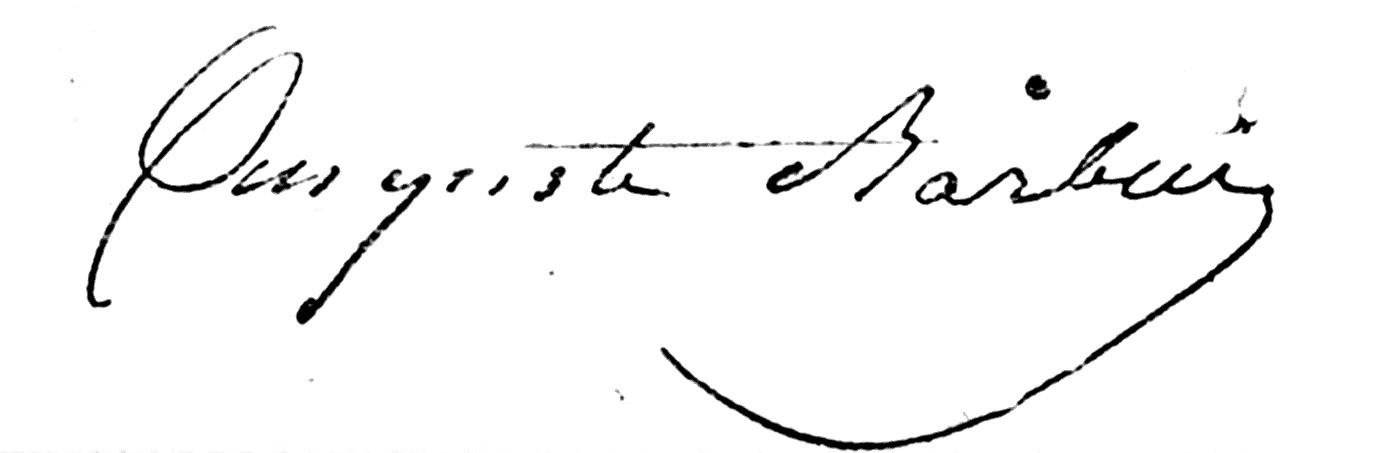 Auguste Barbier